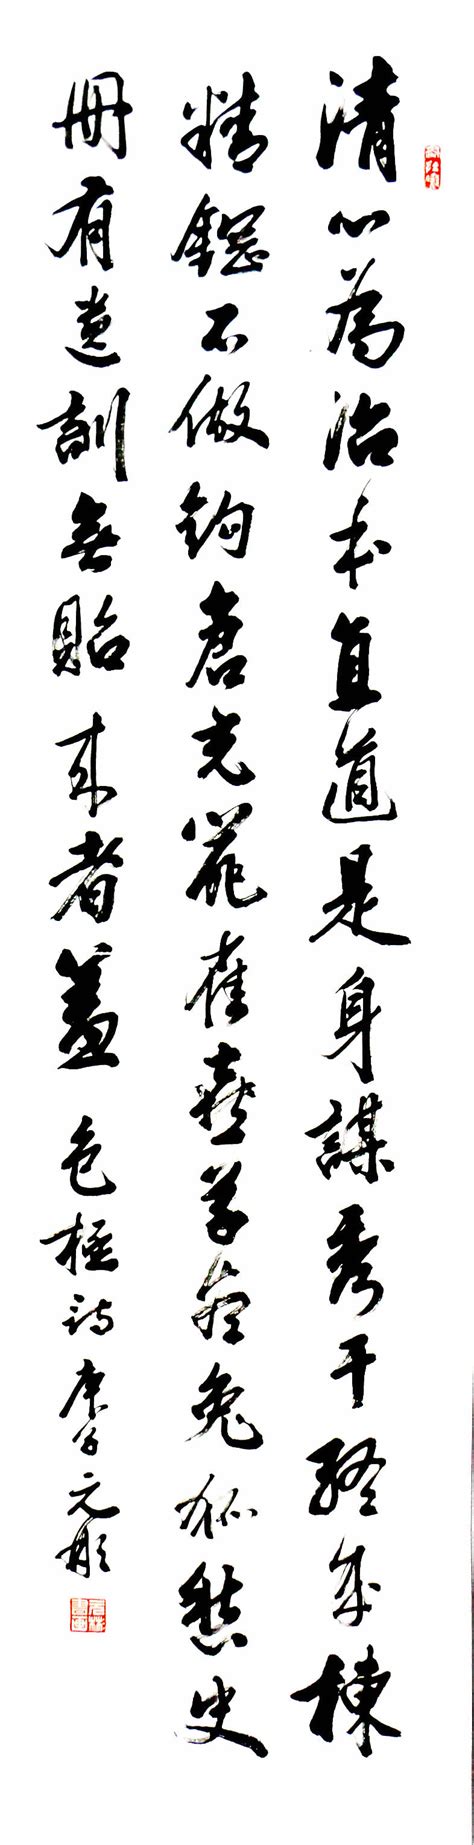 清心為治本直道是身謀秀干終成棟
精鋼不做鉤倉充鼠雀喜草盡兔狐愁史
冊有遺訓無貽來者羞 包拯詩 庚子元彤